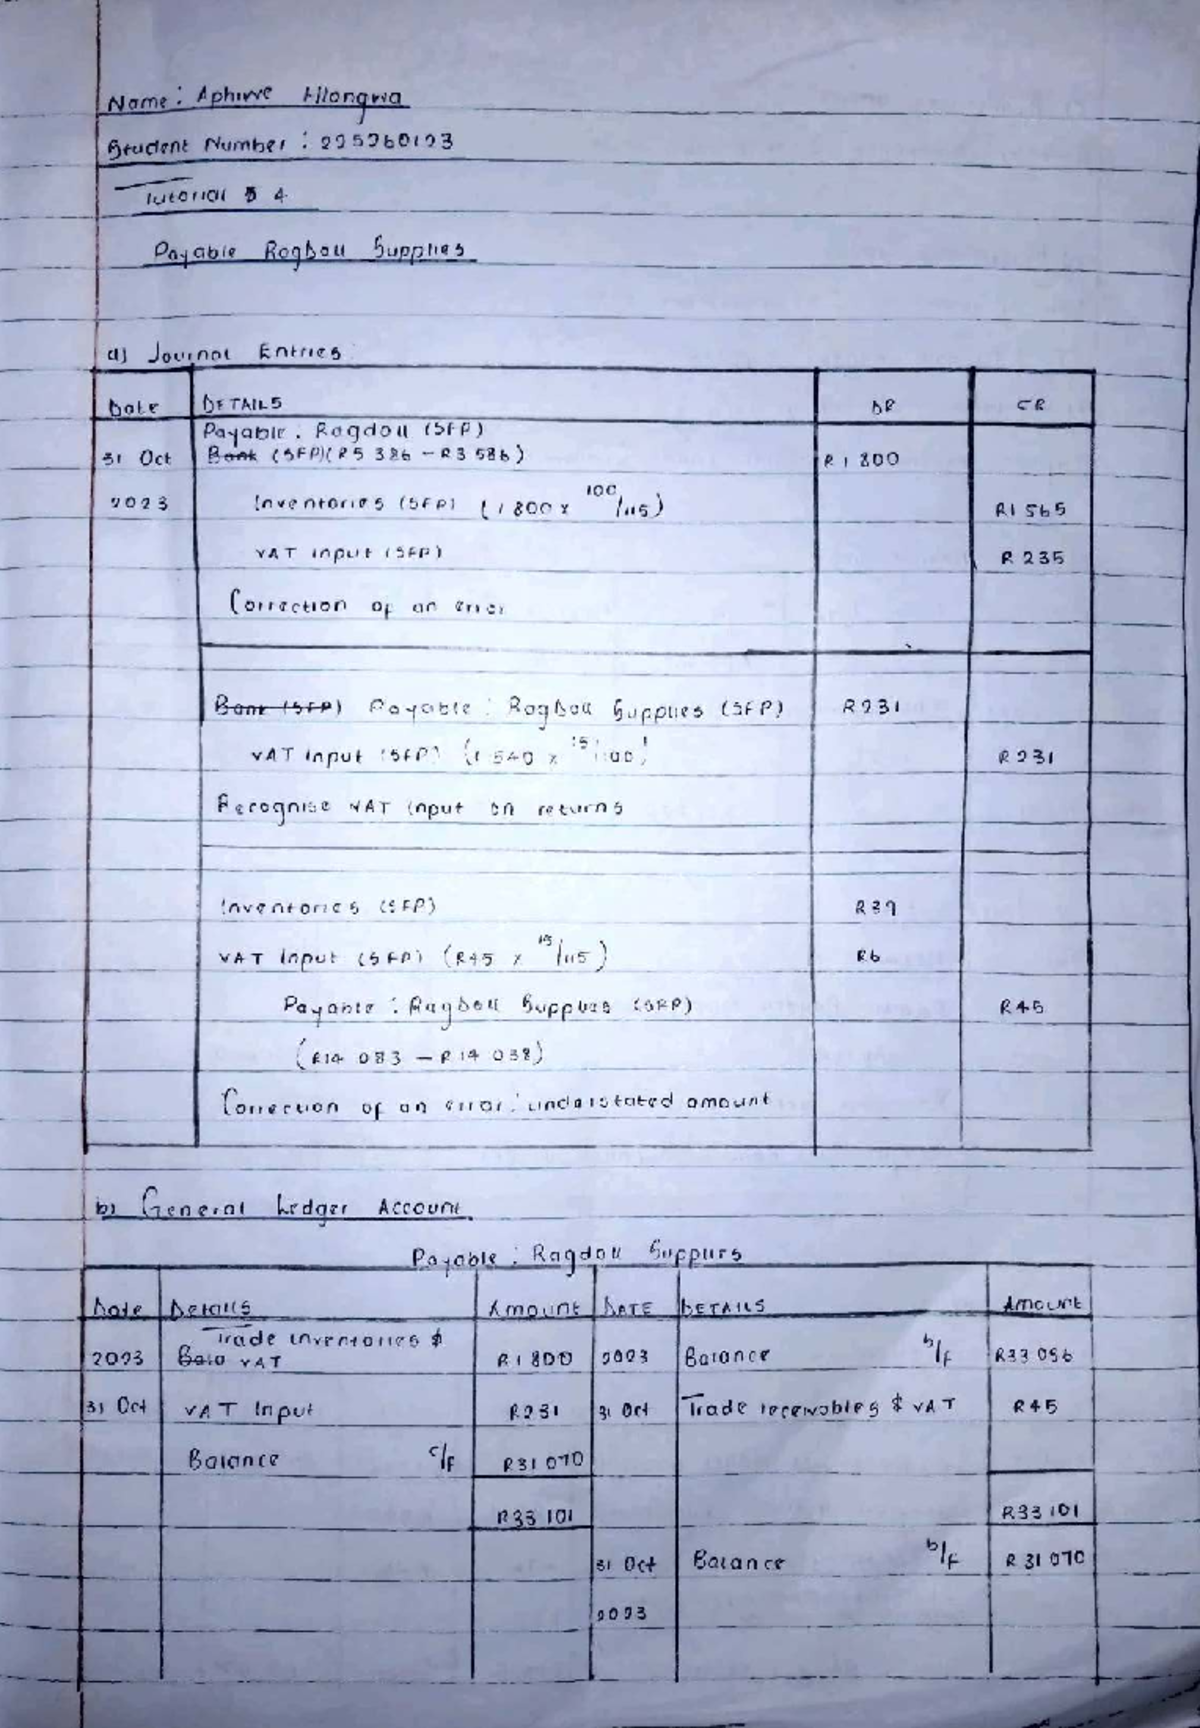 Name: Aphiwe Hlongwa
Student Number: 225260123
Tutorial 4
Payable Ragdoll Supplies
a) Journal Entries
Date DETAILS DR CR
Payable: Ragdoll (SFP)
31 Oct Bank (SFP)(R5 386 - R3 586) R1 800
2023 Inventories (SFP) (1 800 x 100/115) R1 565
VAT input (SFP) R 235
Correction of an error
Bank (SFP) Payable: Ragdoll Supplies (SFP) R231
VAT input (SFP) (1 540 x 15/100) R 231
Recognise VAT input on returns
Inventories (SFP) R39
VAT Input (SFP) (R45 x 15/115) R6
Payable: Ragdoll Supplies (SFP) R45
(R14 083 - R14 038)
Correction of an error: understated amount
b) General Ledger Account
Payable: Ragdoll Suppliers
Date Details Amount DATE DETAILS AMOUNT
Trade inventories &
2023 VAT R1 800 2023 Balance b/f R33 056
31 Oct VAT Input R231 31 Oct Trade receivables & VAT R45
Balance c/f R31 070
R33 101 R33 101
31 Oct Balance b/f R 31 070
2023